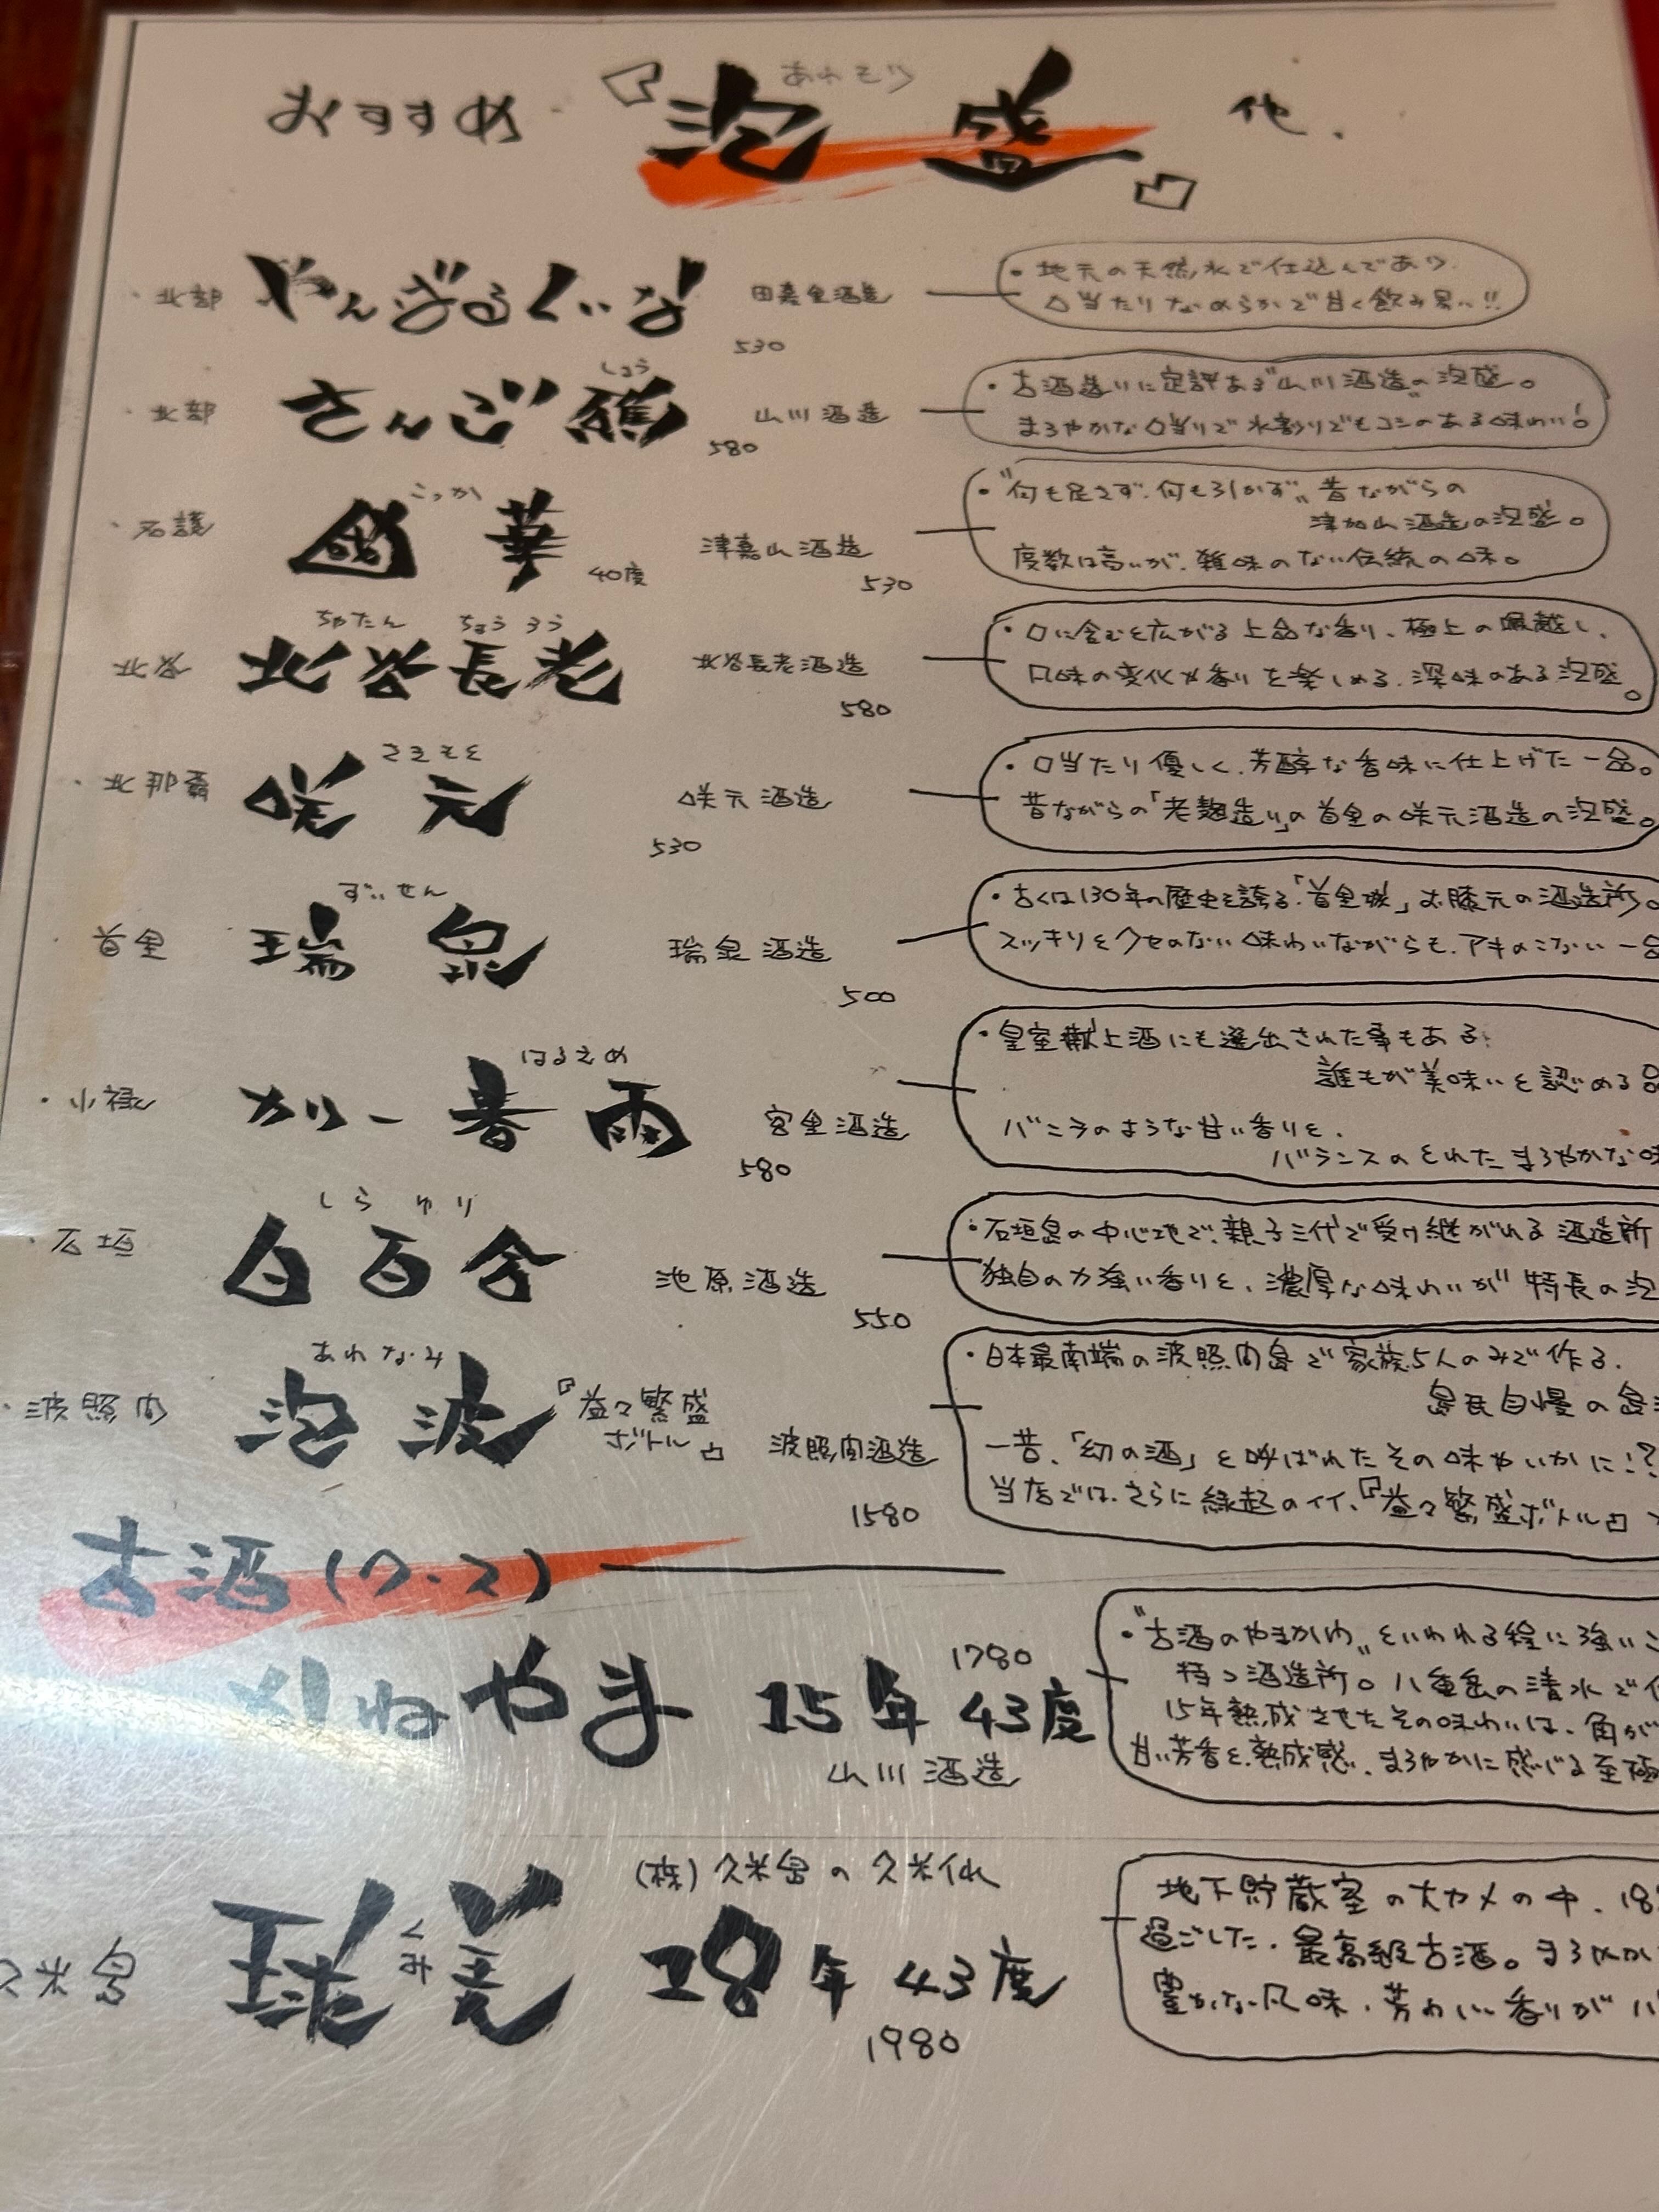 おすすめ 『泡盛』 他.
あわもり
・北部 やんばるくいな 田嘉里酒造
530
・地元の天然水で仕込んであり
口当たりなめらかで甘く飲み易い!!
・北部 さんご礁 山川酒造
しょう
580
・古酒造りに定評ある"山川酒造"の泡盛。
まろやかな口当りで水割りでもコシのある味わい!
・名護 國華 40度 津嘉山酒造
こっか
530
・"何も足さず.何も引かず"昔ながらの
津加山酒造の泡盛。
度数は高いが、雑味のない伝統の味。
北谷 北谷長老 北谷長老酒造
ちゃたん ちょうろう
580
・口に含むと広がる上品な香り、極上の喉越し、
風味の変化や香りを楽しめる、深味のある泡盛。
・北那覇 咲元 咲元酒造
さきもと
530
・口当たり優しく、芳醇な香味に仕上げた一品。
昔ながらの「老麹造り」の首里の咲元酒造の泡盛。
・首里 瑞泉 瑞泉酒造
ずいせん
500
・古くは130年の歴史を誇る「首里城」お膝元の酒造所。
スッキリとクセのない味わいながらも、アキのこない一品
・小禄 カリー春雨 宮里酒造
はるさめ
580
・皇室献上酒にも選出された事もある
誰もが美味いと認める品
バニラのような甘い香りと、
バランスのとれたまろやかな味
・石垣 白百合 池原酒造
しらゆり
550
・石垣島の中心地で、親子三代で受け継がれる酒造所
独自の力強い香りと、濃厚な味わいが特長の泡
・波照間 泡波 『益々繁盛ボトル』 波照間酒造
あわなみ
1580
・日本最南端の波照間島で家族5人のみで作る、
島民自慢の島
一昔、「幻の酒」と呼ばれたその味やいかに!?
当店では、さらに縁起のイイ、『益々繁盛ボトル』
古酒(クース)
かねやま 15年 43度
1780
山川酒造
・"古酒のやまかわ"といわれる程に強いこ
持つ酒造所。八重岳の清水で
15年熟成させたその味わいは、角が
甘い芳香と熟成感、まろやかに感じる至極
久米島 球美 28年 43度
くみ
(株)久米島の久米仙
1980
地下貯蔵室の大カメの中、18
過ごした、最高級古酒。まろやか
豊かな風味、芳わしい香りが